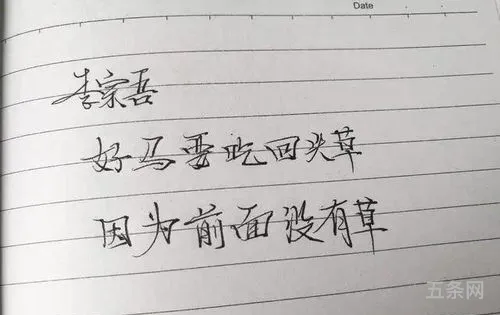 Date
李宗吾
好马要吃回头草
因为前面没有草
五条网